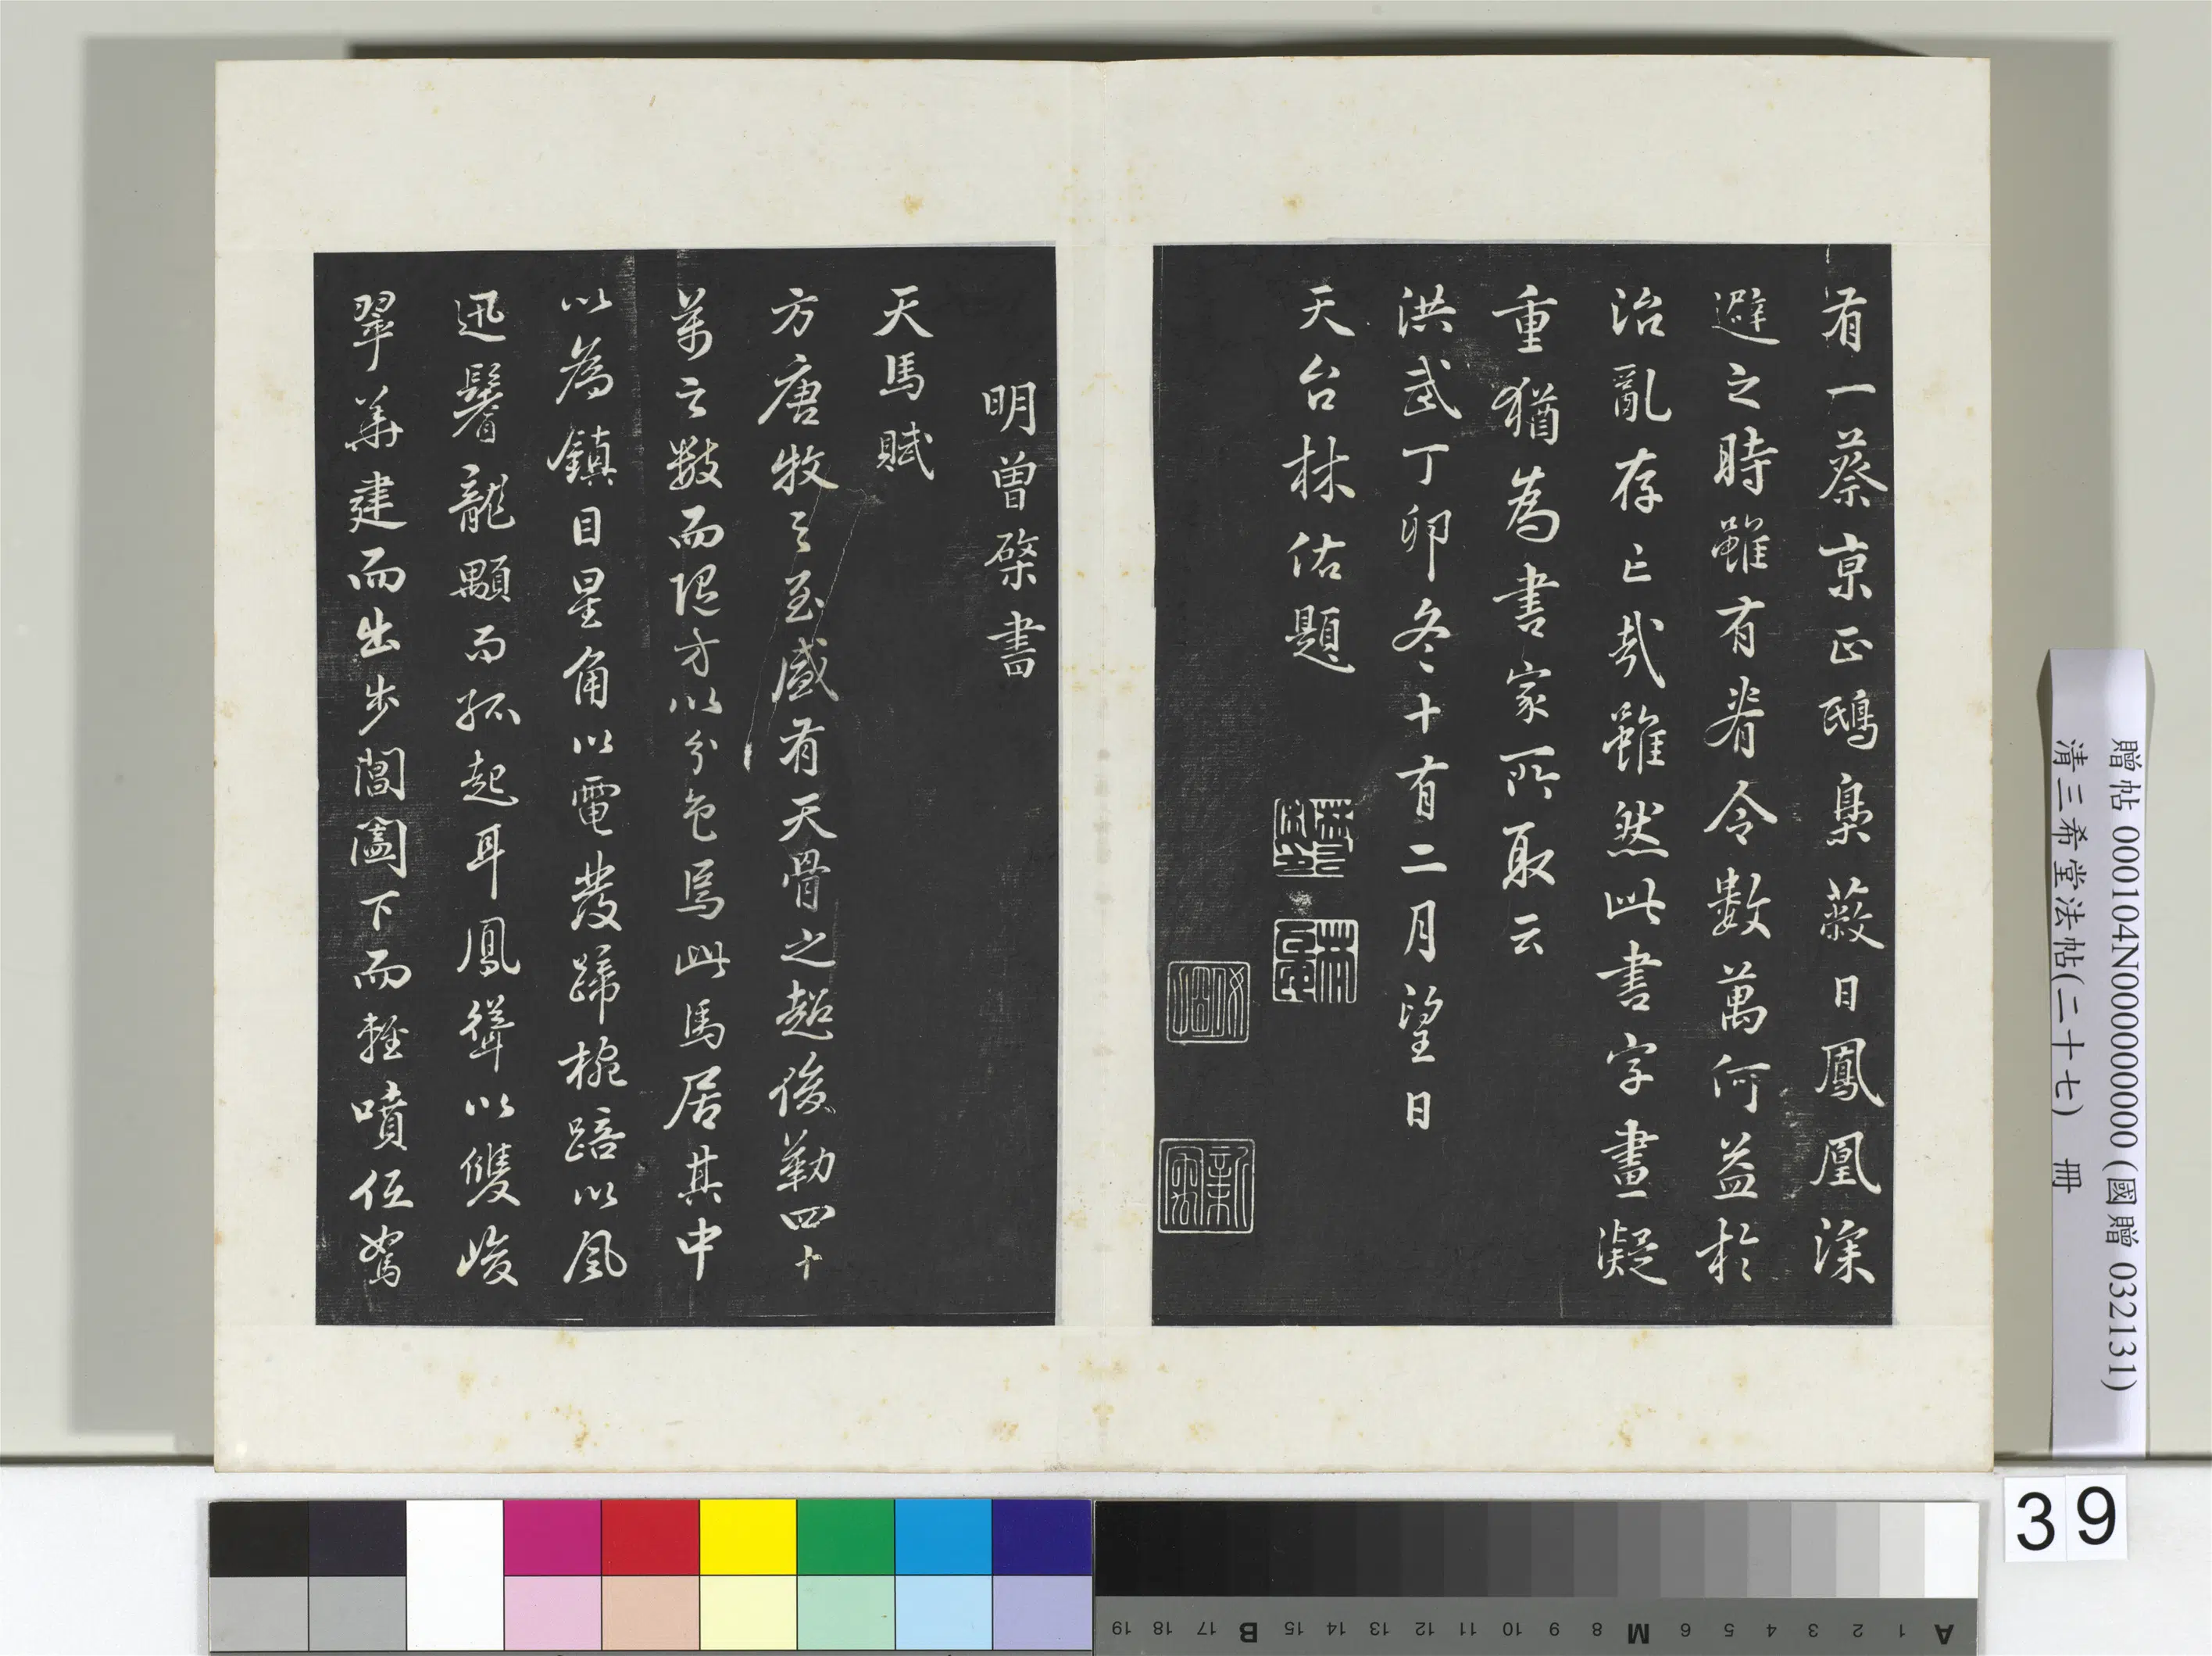 有一蔡京正鴟梟蔽日鳳凰深
避之時雖有眘令數萬何益於
治亂存亡哉雖然此書字畫凝
重猶為書家所取云
洪武丁卯冬十有二月望日
天台林佑題
明曾棨書
天馬賦
方唐牧之至盛有天骨之超俊勒四十
萬之數而隨方以分色焉此馬居其中
以為鎮目星角以電發蹄椀踣以風
迅鬐龍顒而孤起耳鳳聳以雙峻
翠華建而出步閶闔下而輕噴低駑
贈帖 000104N000000000 (國贈 032131)
清三希堂法帖(二十七) 冊
39
A 1 2 3 4 5 6 M 8 9 10 11 12 13 14 15 B 17 18 19